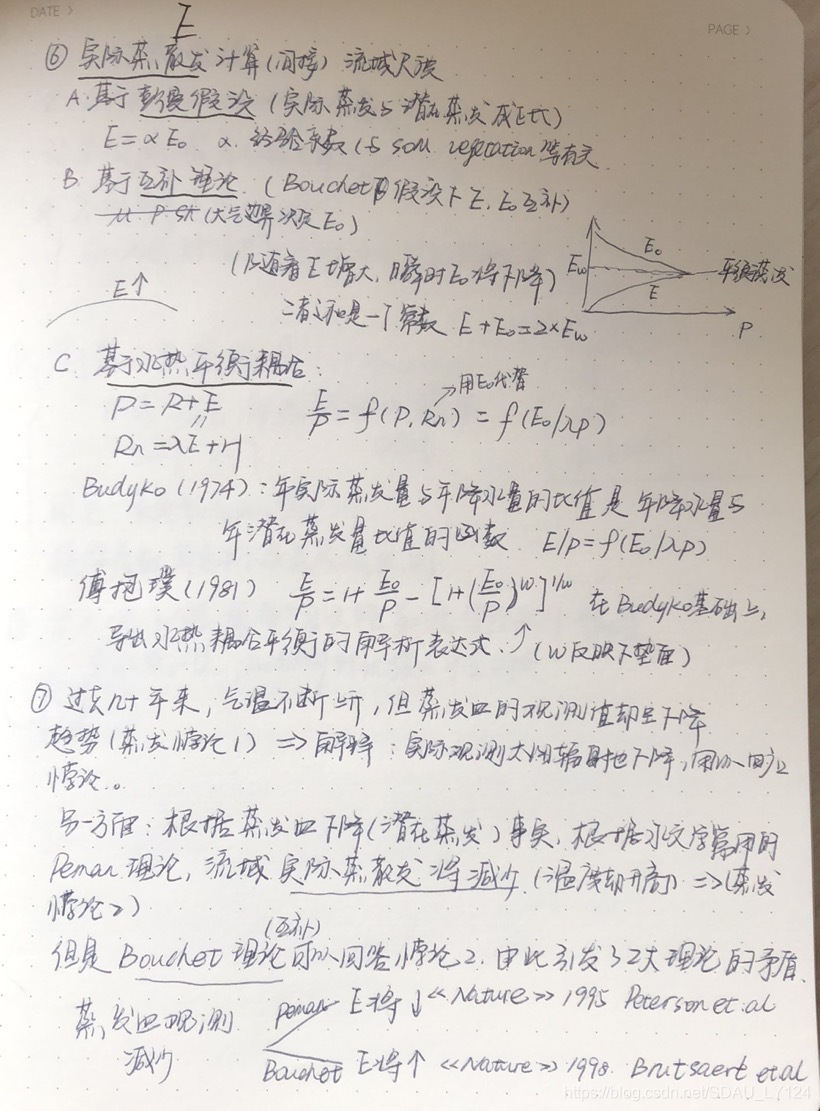 DATE
PAGE
E
⑥ 实际蒸散发计算(间接) 流域尺度
A. 基于彭曼假设 (实际蒸发与潜在蒸发成正比)
E=αE₀ α. 经验系数 (与 soil vegetation 等有关
B. 基于互补理论. (Bouchet 假设下 E, E₀ 互补)
(大气边界决定 E₀)
(B随着E增大, 瞬时E₀将下降)
E₀
Ew
平衡蒸发
E
P
E↑
二者之和是一个常数 E+E₀=2×Ew
C. 基于水热平衡耦合:
用E₀代替
P=R+E
E/P = f(P, Rn) = f(E₀/λP)
Rn=λE+H
Budyko (1974): 年实际蒸发量与年降水量的比值是 年降水量与
年潜在蒸发量比值的函数 E/P=f(E₀/λP)
傅抱璞(1981) E/P=1+E₀/P-[1+(E₀/P)^w]^1/w 在Budyko基础上,
导出水热耦合平衡的解析表达式. ↑ (w反映下垫面)
⑦ 过去几十年来, 气温不断上升, 但蒸发皿的观测值却呈下降
趋势(蒸发悖论1) ⇒ 解释: 实际观测太阳辐射也下降, 可以回应
悖论。
另一方面: 根据蒸发皿下降(潜在蒸发)事实, 根据水文学常用的
Peman 理论, 流域实际蒸散发将减少 (温度却升高) ⇒(蒸发
悖论2)
(互补)
但是 Bouchet 理论可以回答悖论2. 由此引发了2大理论的矛盾.
蒸发皿观测
减少
Peman E将↓ 《Nature》 1995 Peterson et.al
Bouchet E将↑ 《Nature》 1998. Brutsaert et al
https://blog.csdn.net/SDAU_LY124